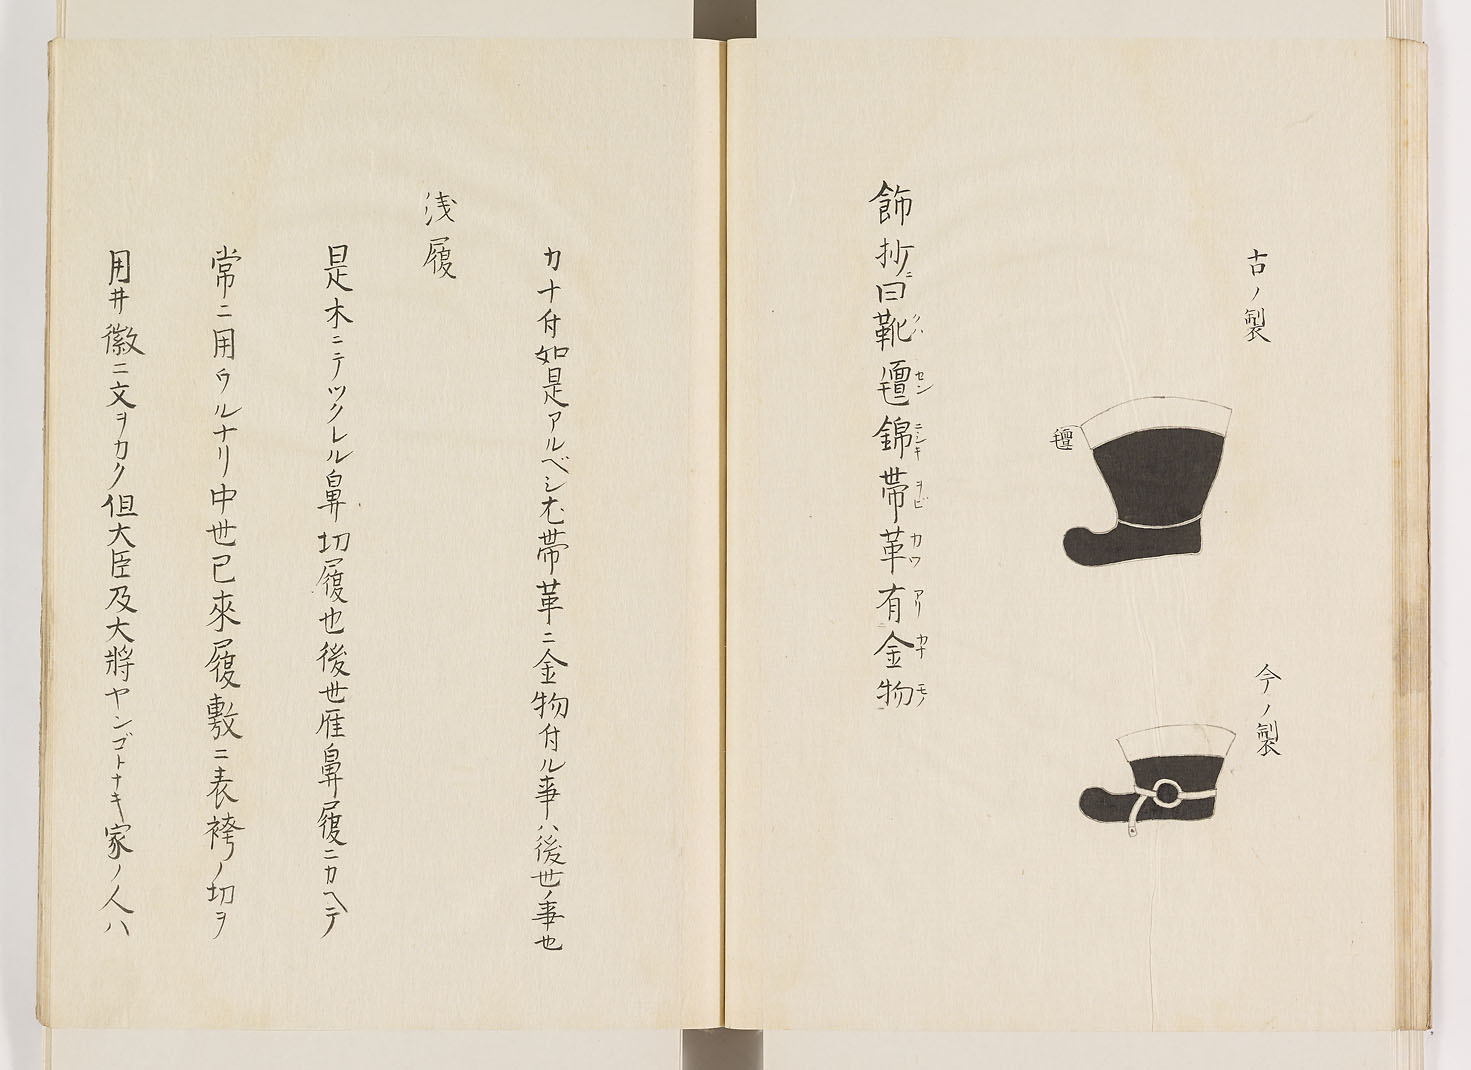 古ノ製
氈
今ノ製
飾抄ニ曰靴氈錦帯革有金物
クハ セン ニシキ ヲビ カワ アリ カナ モノ
カナ付如是アルベシ尤帯革ニ金物付ル事ハ後世ノ事也
浅履
是木ニテツクレル鼻切履也後世雁鼻履ニカヘテ
常ニ用ウルナリ中世已來履敷ニ表袴ノ切ヲ
用井徽ニ文ヲカク但大臣及大將ヤンゴトナキ家ノ人ハ